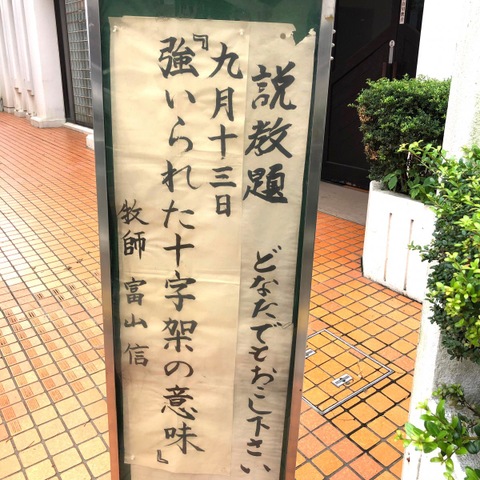 説教題 どなたでもおこし下さい
九月十三日
『強いられた十字架の意味』
牧師 富山信